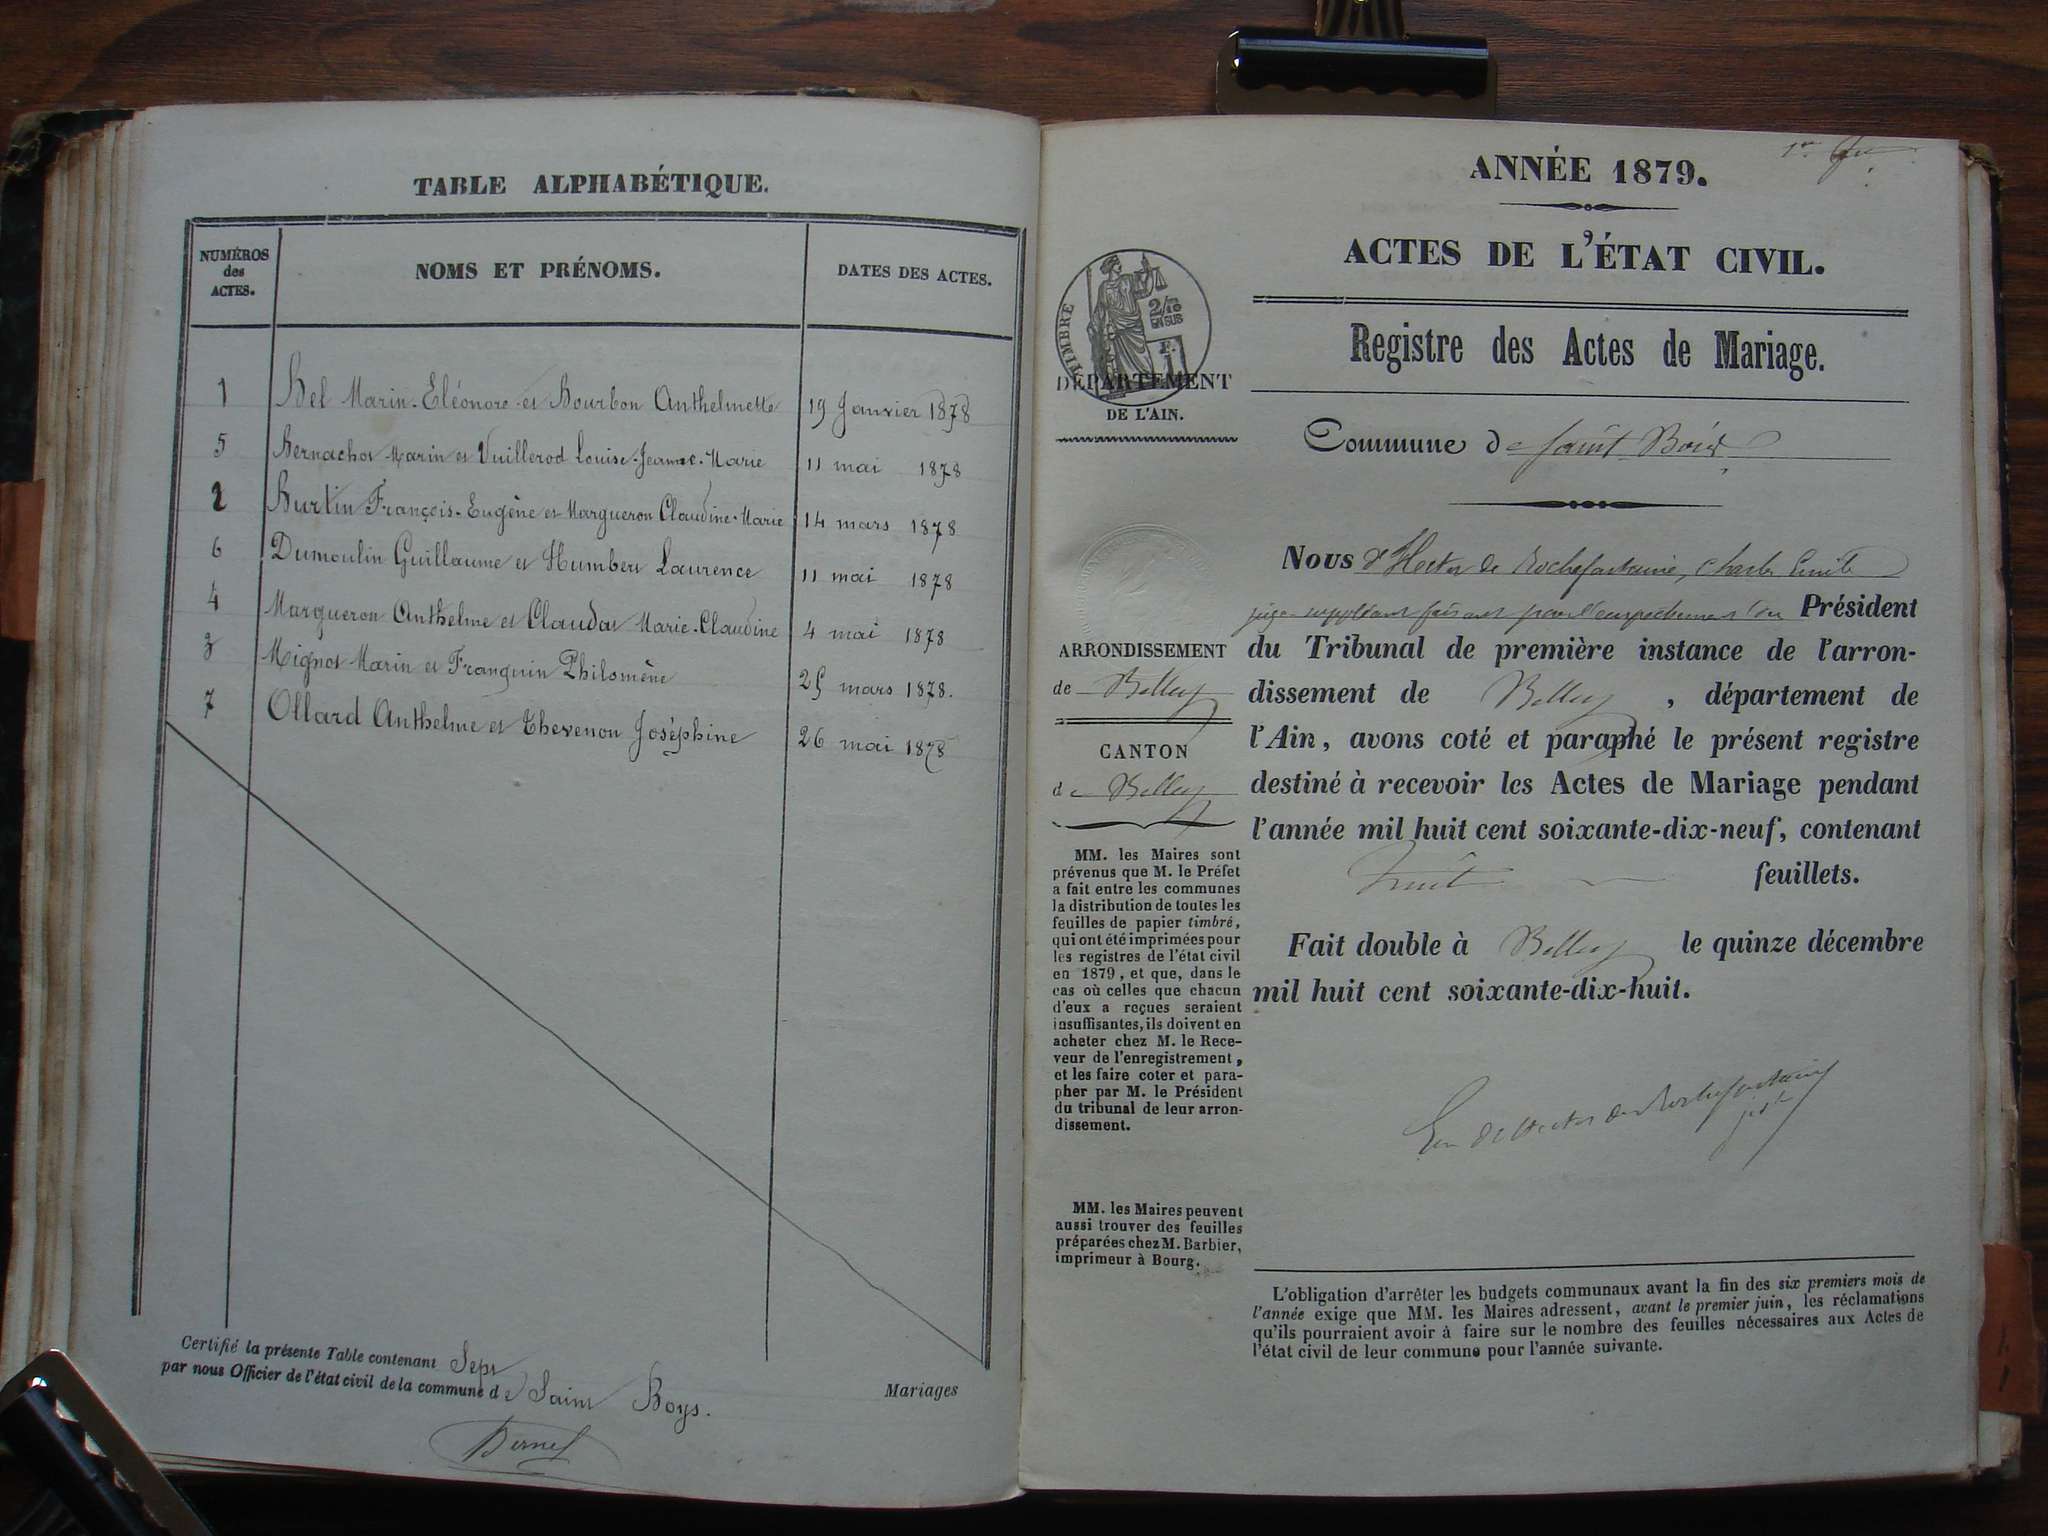 TABLE ALPHABÉTIQUE.
NUMÉROS
des
ACTES.
NOMS ET PRÉNOMS.
DATES DES ACTES.
1 Bel Marin-Eléonore et Bourbon Anthelmette 19 Janvier 1878
5 Bernachot Marin et Vuillerod Louise-Jeanne-Marie 11 mai 1878
2 Burtin François-Eugène et Margueron Claudine-Marie 14 mars 1878
6 Dumoulin Guillaume et Humbert Laurence 11 mai 1878
4 Margueron Anthelme et Claudat Marie-Claudine 4 mai 1878
3 Mignot Marin et Franquin Philomène 25 mars 1878.
7 Ollard Anthelme et Thevenon Joséphine 26 mai 1878
Certifié la présente Table contenant Sept Mariages
par nous Officier de l'état civil de la commune de Saint Boys.
Bernet
1er
ANNÉE 1879.
ACTES DE L'ÉTAT CIVIL.
Registre des Actes de Mariage.
TIMBRE
2/10
EN SUS
F.
1
DÉPARTEMENT
DE L'AIN.
Commune de Saint Bois
Nous d'Hector de Rochefontaine, Charles Emile
juge suppléant faisant pour l'empêchement du Président
du Tribunal de première instance de l'arron-
dissement de Belley, département de
l'Ain, avons coté et paraphé le présent registre
destiné à recevoir les Actes de Mariage pendant
l'année mil huit cent soixante-dix-neuf, contenant
huit feuillets.
Fait double à Belley le quinze décembre
mil huit cent soixante-dix-huit.
d'Hector de Rochefontaine
ARRONDISSEMENT
de Belley
CANTON
de Belley
MM. les Maires sont
prévenus que M. le Préfet
a fait entre les communes
la distribution de toutes les
feuilles de papier timbré,
qui ont été imprimées pour
les registres de l'état civil
en 1879, et que, dans le
cas où celles que chacun
d'eux a reçues seraient
insuffisantes, ils doivent en
acheter chez M. le Rece-
veur de l'enregistrement,
et les faire coter et para-
pher par M. le Président
du tribunal de leur arron-
dissement.
MM. les Maires peuvent
aussi trouver des feuilles
préparées chez M. Barbier,
imprimeur à Bourg.
L'obligation d'arrêter les budgets communaux avant la fin des six premiers mois de
l'année exige que MM. les Maires adressent, avant le premier juin, les réclamations
qu'ils pourraient avoir à faire sur le nombre des feuilles nécessaires aux Actes de
l'état civil de leur commune pour l'année suivante.